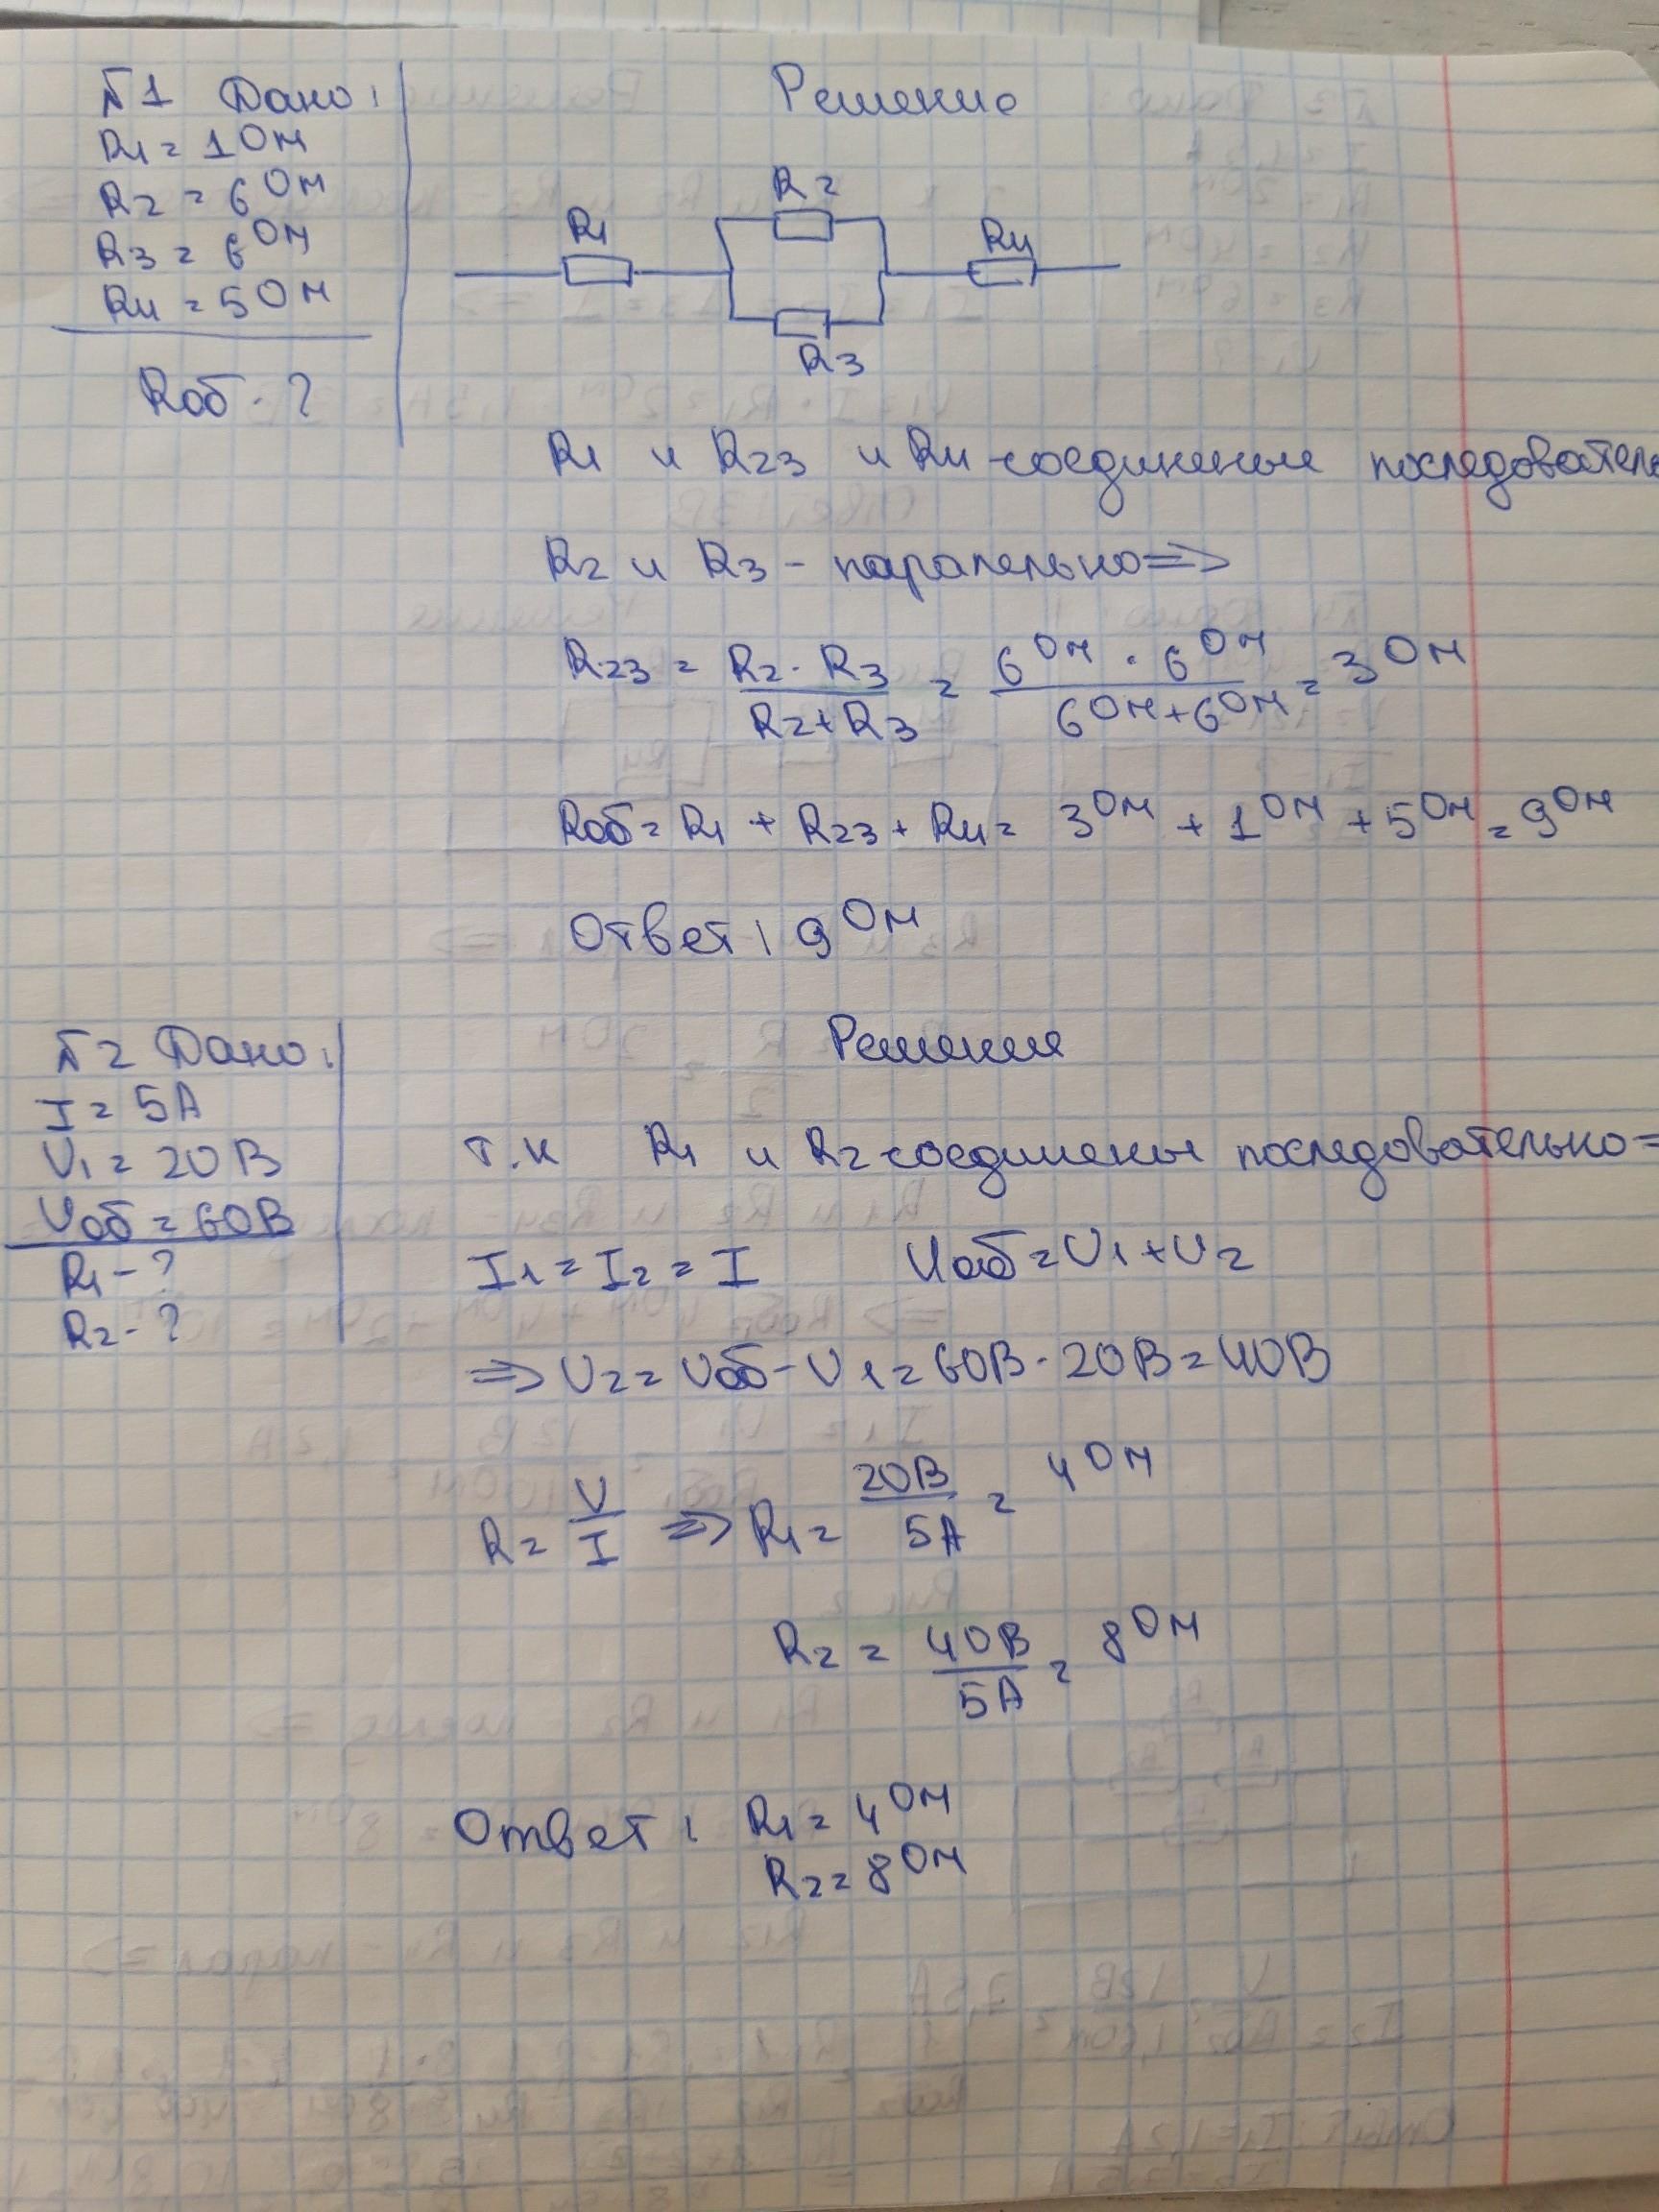 №1 Дано:
R1 = 1 Ом
R2 = 6 Ом
R3 = 6 Ом
R4 = 5 Ом
Rоб - ?
Решение
R2
R1
R4
R3
R1 и R23 и R4 - соединены последователь
R2 и R3 - паралельно =>
R23 = R2 · R3 / R2 + R3 = 6 Ом · 6 Ом / 6 Ом + 6 Ом = 3 Ом
Rоб = R1 + R23 + R4 = 3 Ом + 1 Ом + 5 Ом = 9 Ом
Ответ: 9 Ом
№2 Дано:
I = 5А
U1 = 20В
Uоб = 60В
R1 - ?
R2 - ?
Решение
т.к R1 и R2 соединены последовательно =
I1 = I2 = I Uоб = U1 + U2
=> U2 = Uоб - U1 = 60В - 20В = 40В
R = U / I => R1 = 20В / 5А = 4 Ом
R2 = 40В / 5А = 8 Ом
Ответ: R1 = 4 Ом
R2 = 8 Ом